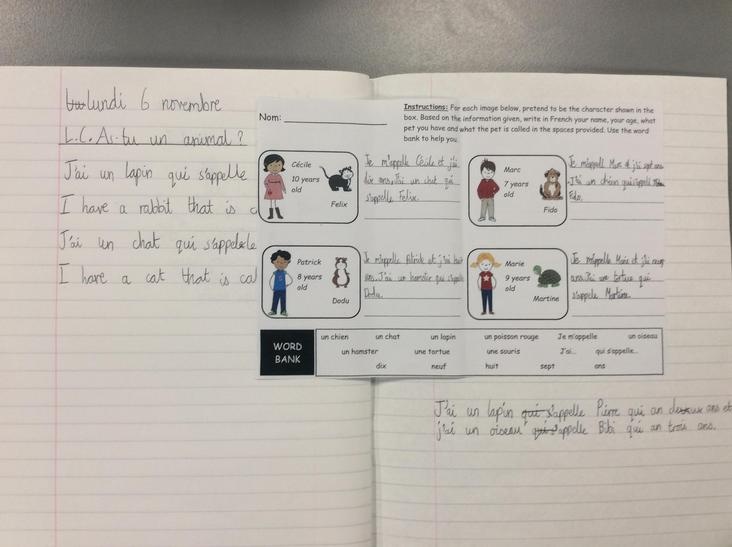 lundi 6 novembre
L.C. As-tu un animal?
J'ai un lapin qui s'appelle
I have a rabbit that is c
J'ai un chat qui s'appelle
I have a cat that is cal
Nom:
Instructions: For each image below, pretend to be the character shown in the
box. Based on the information given, write in French your name, your age, what
pet you have and what the pet is called in the spaces provided. Use the word
bank to help you.
Cécile
10 years
old
Felix
Je m'appelle Cécile et j'ai
dix ans. J'ai un chat qui
s'appelle Felix.
Marc
7 years
old
Fido
Je m'appell Marc et j'ai sept ans
. J'ai un chien qui s'appell
Fido.
Patrick
8 years
old
Dodu
Je m'appelle Patrick et j'ai huit
ans. J'ai un hamster qui s'appelle
Dodu.
Marie
9 years
old
Martine
Je m'appelle Marie et j'ai neuf
ans. J'ai un tortue qui
s'appelle Martine.
WORD
BANK
un chien un chat un lapin un poisson rouge Je m'appelle un oiseau
un hamster une tortue une souris J'ai... qui s'appelle...
dix neuf huit sept ans
J'ai un lapin qui s'appelle Pierre qui an deux ans et
j'ai un oiseau qui s'appelle Bibi qui an trois ans.